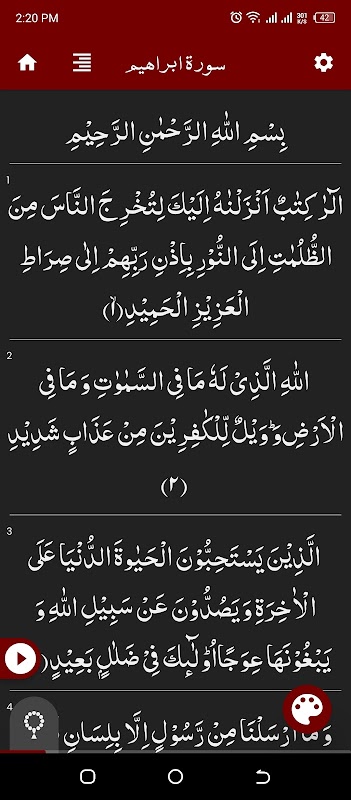 2:20 PM 301 K/S 42
سورة ابراهيم
بِسْمِ اللهِ الرَّحْمٰنِ الرَّحِيْمِ
1
الٓرٰ كِتٰبٌ اَنْزَلْنٰهُ اِلَيْكَ لِتُخْرِجَ النَّاسَ مِنَ
الظُّلُمٰتِ اِلَى النُّوْرِ بِاِذْنِ رَبِّهِمْ اِلٰى صِرَاطِ
الْعَزِيْزِ الْحَمِيْدِ (۱)
2
اللهِ الَّذِىْ لَهٗ مَا فِى السَّمٰوٰتِ وَ مَا فِى
الْاَرْضِ وَ وَيْلٌ لِّلْكٰفِرِيْنَ مِنْ عَذَابٍ شَدِيْدِ
(۲)
3
الَّذِيْنَ يَسْتَحِبُّوْنَ الْحَيٰوةَ الدُّنْيَا عَلَى
الْاٰخِرَةِ وَ يَصُدُّوْنَ عَنْ سَبِيْلِ اللهِ وَ
يَبْغُوْنَهَا عِوَجًا اُولٰٓئِكَ فِىْ ضَلٰلٍ بَعِيْدٍ (
4
وَ مَا اَرْسَلْنَا مِنْ رَّسُوْلٍ اِلَّا بِلِسَانِ